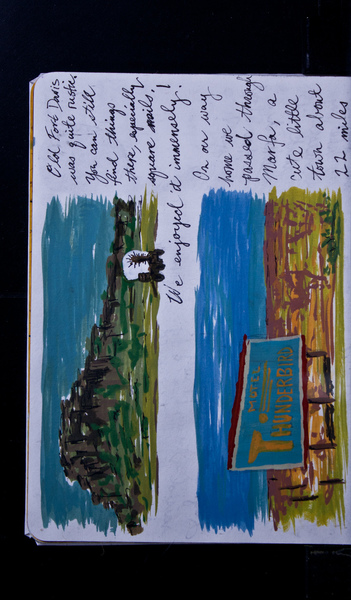 Old Fort Davis
was quite rustic.
You can still
find things
there, especially
square nails.
We enjoyed it immensely!
On our way
home we
passed through
Marfa, a
cute little
town about
22 miles
MOTEL
THUNDERBIRD